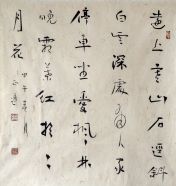 遠上寒山石逕斜
白雲深處有人家
停車坐愛楓林
晚霜葉紅於二
月花
甲午